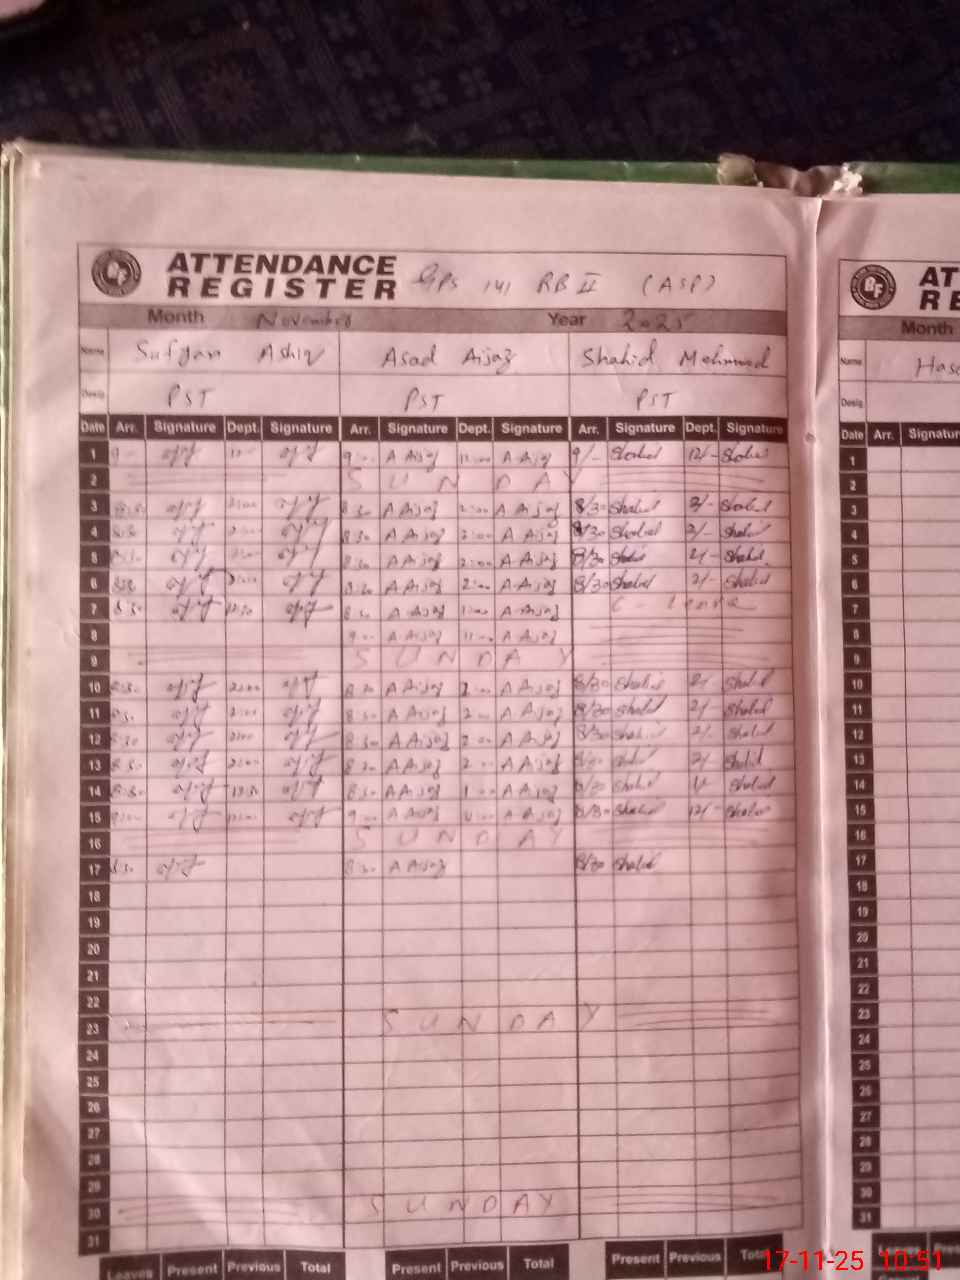 ATTENDANCE REGISTER GPS 141 RB II (ASP)
Month November Year 2025
Name Sufyan Ashiq Asad Aijaz Shahid Mehmood
Desig. PST PST PST
Date Arr. Signature Dept. Signature Arr. Signature Dept. Signature Arr. Signature Dept. Signature
1 9 9:00 A Aijaz 11:00 A Aijaz 9/- Shahid 12/- Shahid
2 SUNDAY
3 8:30 2:00 8:30 A Aijaz 2:00 A Aijaz 8/30 Shahid 2/- Shahid
4 8:30 2:00 8:30 A Aijaz 2:00 A Aijaz 8/30 Shahid 2/- Shahid
5 8:30 2:00 8:30 A Aijaz 2:00 A Aijaz 8/30 Shahid 2/- Shahid
6 8:30 2:00 8:30 A Aijaz 2:00 A Aijaz 8/30 Shahid 2/- Shahid
7 8:30 12:30 8:30 A Aijaz A Aijaz C- Leave
8 9:00 A Aijaz 11:00 A Aijaz
9 SUNDAY
10 8:30 2:00 8:30 A Aijaz 2:00 A Aijaz 8/30 Shahid 2/- Shahid
11 8:30 2:00 8:30 A Aijaz 2:00 A Aijaz 8/30 Shahid 2/- Shahid
12 8:30 2:00 8:30 A Aijaz 2:00 A Aijaz 8/30 Shahid 2/- Shahid
13 8:30 2:00 8:30 A Aijaz 2:00 A Aijaz 8/30 Shahid 2/- Shahid
14 8:30 8:30 A Aijaz A Aijaz 8/30 Shahid Shahid
15 9:00 A Aijaz A Aijaz 8/30 Shahid 12/- Shahid
16 SUNDAY
17 8:30 8:30 A Aijaz 8/30 Shahid
18
19
20
21
22
23 SUNDAY
24
25
26
27
28
29
30 SUNDAY
31
Leaves Present Previous Total Present Previous Total Present Previous Total
BF
Month
Name
Desig.
Date Arr.
1
2
3
4
5
6
7
8
9
10
11
12
13
14
15
16
17
18
19
20
21
22
23
24
25
26
27
28
29
30
31
17-11-25 10:51